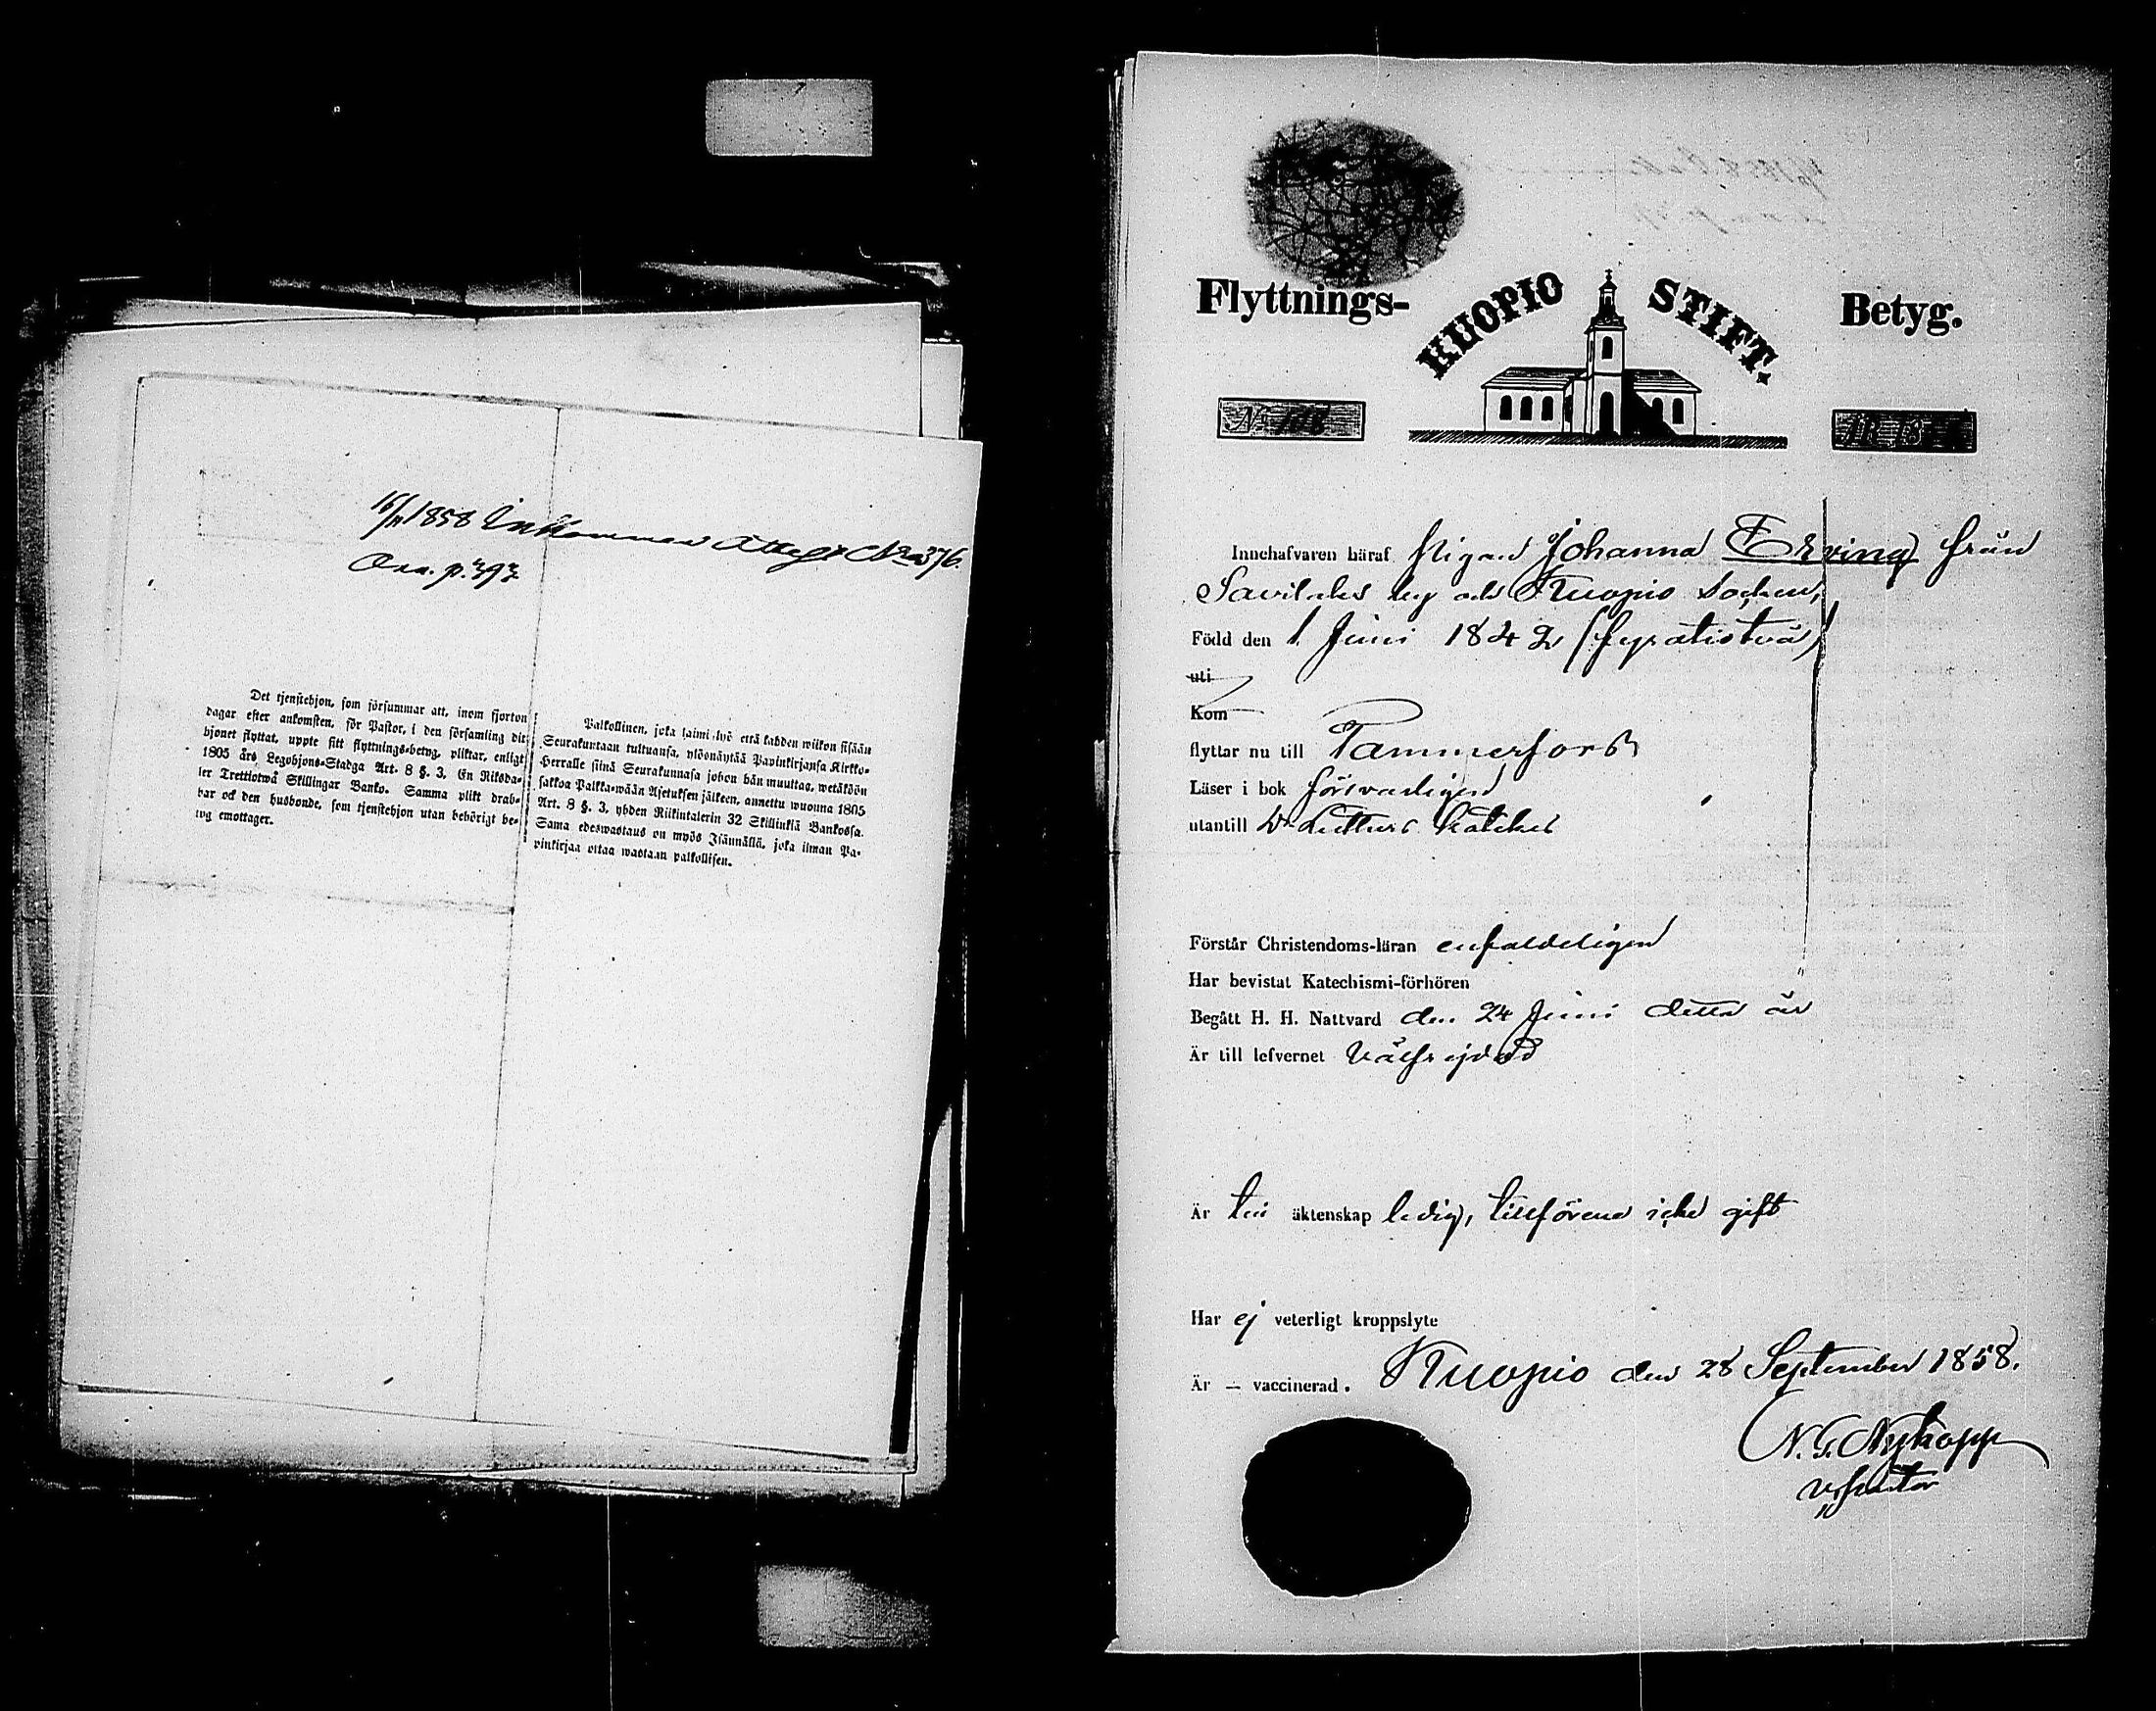 16/11 1858 Inkommen Attest No 376.
p. 397
Det tjenstehjon, som försummar att, inom fjorton
dagar efter ankomsten, för Pastor, i den församling dit
hjonet flyttat, uppte sitt flyttnings-betyg, pliktar, enligt
1805 års Legohjons-Stadga Art. 8 §. 3. En Riksda-
ler Trettiotwå Skillingar Banko. Samma plikt drab-
bar ock den husbonde, som tjenstehjon utan behörigt be-
tyg emottager.
Palkollinen, joka laimi-lyö että kahden wiikon sisään
Seurakuntaan tultuansa, ylöönäytää Pavinkirjansa Kirkko-
Herralle siinä Seurakunnasa johon hän muuttaa, wetäköön
sakkoa Palkka-wään Asetuksen jälkeen, annettu wuonna 1805
Art. 8 §. 3, yhden Riikintalerin 32 Skillinkiä Bankossa.
Sama edeswastaus on myös Isännällä, joka ilman Pa-
vinkirjaa ottaa wastaan palkollisen.
Flyttnings- KUOPIO STIFT. Betyg.
No
Innehafvaren häraf Pigan Johanna Erving från
Savilaks by och Kuopio socken,
Född den 1 Juni 1842 (fyratiotvå)
uti
Kom
flyttar nu till Tammerfors
Läser i bok försvarligen
utantill Dr Luthers kateches
Förstår Christendoms-läran enfaldeligen
Har bevistat Katechismi-förhören
Begått H. H. Nattvard den 24 Juni detta år
Är till lefvernet välfrejdad
Är till äktenskap ledig, tillförene icke gift
Har ej veterligt kroppslyte
Är – vaccinerad. Kuopio den 28 September 1858.
N. G. Nykopp